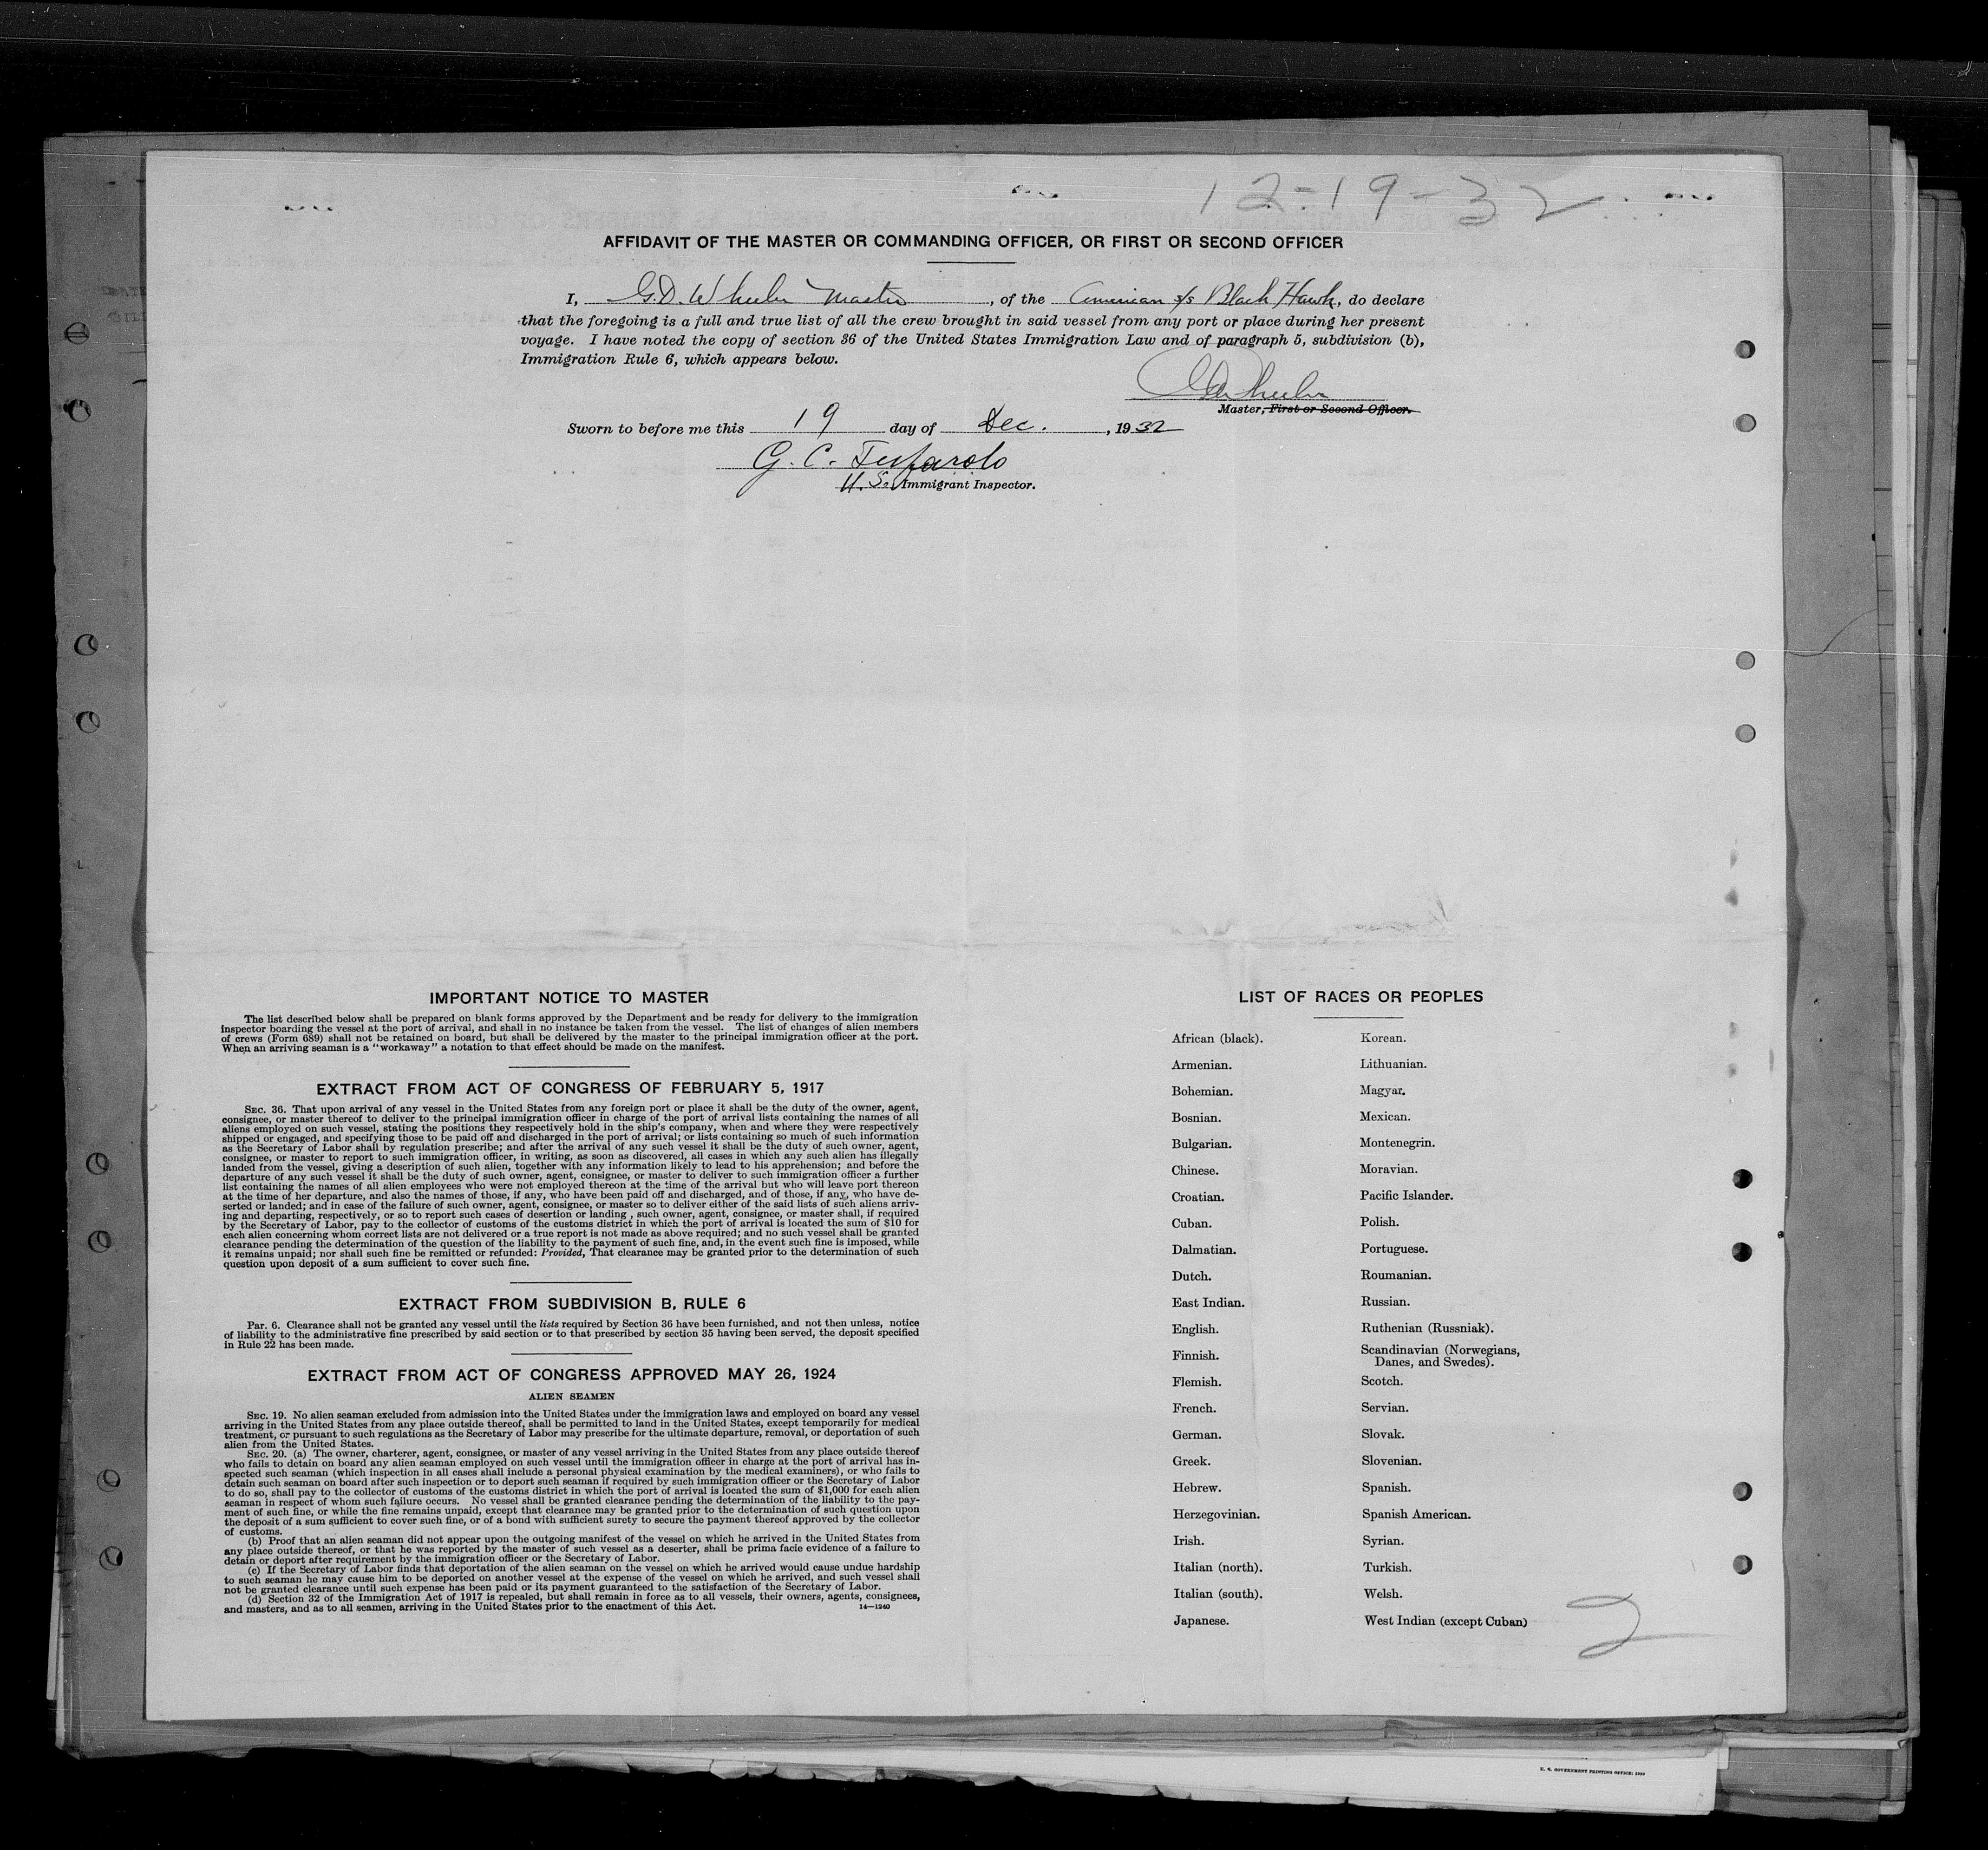 12-19-32
AFFIDAVIT OF THE MASTER OR COMMANDING OFFICER, OR FIRST OR SECOND OFFICER
I, G.D. Wheeler Master, of the American s/s Black Hawk, do declare
that the foregoing is a full and true list of all the crew brought in said vessel from any port or place during her present
voyage. I have noted the copy of section 36 of the United States Immigration Law and of paragraph 5, subdivision (b),
Immigration Rule 6, which appears below.
GD Wheeler
Master, First or Second Officer.
Sworn to before me this 19 day of Dec., 1932
G. C.
U.S. Immigrant Inspector.
IMPORTANT NOTICE TO MASTER
The list described below shall be prepared on blank forms approved by the Department and be ready for delivery to the immigration
inspector boarding the vessel at the port of arrival, and shall in no instance be taken from the vessel. The list of changes of alien members
of crews (Form 689) shall not be retained on board, but shall be delivered by the master to the principal immigration officer at the port.
When an arriving seaman is a "workaway" a notation to that effect should be made on the manifest.
EXTRACT FROM ACT OF CONGRESS OF FEBRUARY 5, 1917
SEC. 36. That upon arrival of any vessel in the United States from any foreign port or place it shall be the duty of the owner, agent,
consignee, or master thereof to deliver to the principal immigration officer in charge of the port of arrival lists containing the names of all
aliens employed on such vessel, stating the positions they respectively hold in the ship's company, when and where they were respectively
shipped or engaged, and specifying those to be paid off and discharged in the port of arrival; or lists containing so much of such information
as the Secretary of Labor shall by regulation prescribe; and after the arrival of any such vessel it shall be the duty of such owner, agent,
consignee, or master to report to such immigration officer, in writing, as soon as discovered, all cases in which any such alien has illegally
landed from the vessel, giving a description of such alien, together with any information likely to lead to his apprehension; and before the
departure of any such vessel it shall be the duty of such owner, agent, consignee, or master to deliver to such immigration officer a further
list containing the names of all alien employees who were not employed thereon at the time of the arrival but who will leave port thereon
at the time of her departure, and also the names of those, if any, who have been paid off and discharged, and of those, if any, who have de-
serted or landed; and in case of the failure of such owner, agent, consignee, or master so to deliver either of the said lists of such aliens arriv-
ing and departing, respectively, or so to report such cases of desertion or landing , such owner, agent, consignee, or master shall, if required
by the Secretary of Labor, pay to the collector of customs of the customs district in which the port of arrival is located the sum of $10 for
each alien concerning whom correct lists are not delivered or a true report is not made as above required; and no such vessel shall be granted
clearance pending the determination of the question of the liability to the payment of such fine, and, in the event such fine is imposed, while
it remains unpaid; nor shall such fine be remitted or refunded: Provided, That clearance may be granted prior to the determination of such
question upon deposit of a sum sufficient to cover such fine.
EXTRACT FROM SUBDIVISION B, RULE 6
Par. 6. Clearance shall not be granted any vessel until the lists required by Section 36 have been furnished, and not then unless, notice
of liability to the administrative fine prescribed by said section or to that prescribed by section 35 having been served, the deposit specified
in Rule 22 has been made.
EXTRACT FROM ACT OF CONGRESS APPROVED MAY 26, 1924
ALIEN SEAMEN
SEC. 19. No alien seaman excluded from admission into the United States under the immigration laws and employed on board any vessel
arriving in the United States from any place outside thereof, shall be permitted to land in the United States, except temporarily for medical
treatment, or pursuant to such regulations as the Secretary of Labor may prescribe for the ultimate departure, removal, or deportation of such
alien from the United States.
SEC. 20. (a) The owner, charterer, agent, consignee, or master of any vessel arriving in the United States from any place outside thereof
who fails to detain on board any alien seaman employed on such vessel until the immigration officer in charge at the port of arrival has in-
spected such seaman (which inspection in all cases shall include a personal physical examination by the medical examiners), or who fails to
detain such seaman on board after such inspection or to deport such seaman if required by such immigration officer or the Secretary of Labor
to do so, shall pay to the collector of customs of the customs district in which the port of arrival is located the sum of $1,000 for each alien
seaman in respect of whom such failure occurs. No vessel shall be granted clearance pending the determination of the liability to the pay-
ment of such fine, or while the fine remains unpaid, except that clearance may be granted prior to the determination of such question upon
the deposit of a sum sufficient to cover such fine, or of a bond with sufficient surety to secure the payment thereof approved by the collector
of customs.
(b) Proof that an alien seaman did not appear upon the outgoing manifest of the vessel on which he arrived in the United States from
any place outside thereof, or that he was reported by the master of such vessel as a deserter, shall be prima facie evidence of a failure to
detain or deport after requirement by the immigration officer or the Secretary of Labor.
(c) If the Secretary of Labor finds that deportation of the alien seaman on the vessel on which he arrived would cause undue hardship
to such seaman he may cause him to be deported on another vessel at the expense of the vessel on which he arrived, and such vessel shall
not be granted clearance until such expense has been paid or its payment guaranteed to the satisfaction of the Secretary of Labor.
(d) Section 32 of the Immigration Act of 1917 is repealed, but shall remain in force as to all vessels, their owners, agents, consignees,
and masters, and as to all seamen, arriving in the United States prior to the enactment of this Act.
14—1240
LIST OF RACES OR PEOPLES
African (black). Korean.
Armenian. Lithuanian.
Bohemian. Magyar.
Bosnian. Mexican.
Bulgarian. Montenegrin.
Chinese. Moravian.
Croatian. Pacific Islander.
Cuban. Polish.
Dalmatian. Portuguese.
Dutch. Roumanian.
East Indian. Russian.
English. Ruthenian (Russniak).
Finnish. Scandinavian (Norwegians,
Danes, and Swedes).
Flemish. Scotch.
French. Servian.
German. Slovak.
Greek. Slovenian.
Hebrew. Spanish.
Herzegovinian. Spanish American.
Irish. Syrian.
Italian (north). Turkish.
Italian (south). Welsh.
Japanese. West Indian (except Cuban)
2
U. S. GOVERNMENT PRINTING OFFICE: